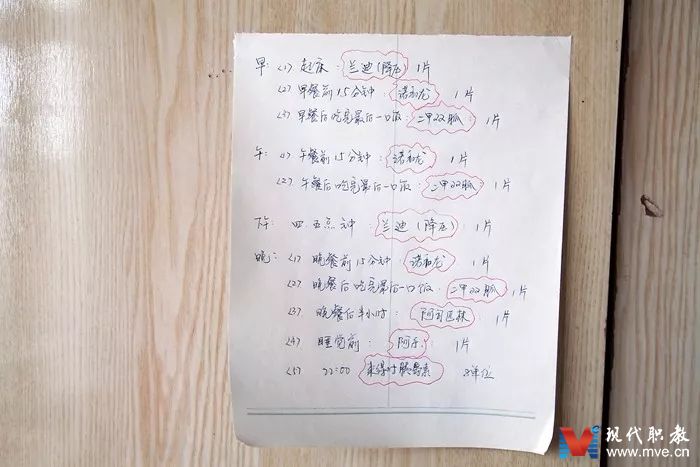 早: <1> 起床: 兰迪(降压) 1片
<2> 早餐前15分钟: 诺和龙 1片
<3> 早餐后吃完最后一口饭: 二甲双胍: 1片
午: <1> 午餐前15分钟: 诺和龙 1片
<2> 午餐后吃完最后一口饭: 二甲双胍: 1片
下午: 四.五点钟: 兰迪(降压) 1片
晚: <1> 晚餐前15分钟: 诺和龙 1片
<2> 晚餐后吃完最后一口饭: 二甲双胍 1片
<3> 晚餐后半小时: 阿司匹林 1片
<4> 睡觉前: 阿乐: 1片
<5> 22:00 来得时胰岛素 8单位
现代职教
www.mve.cn